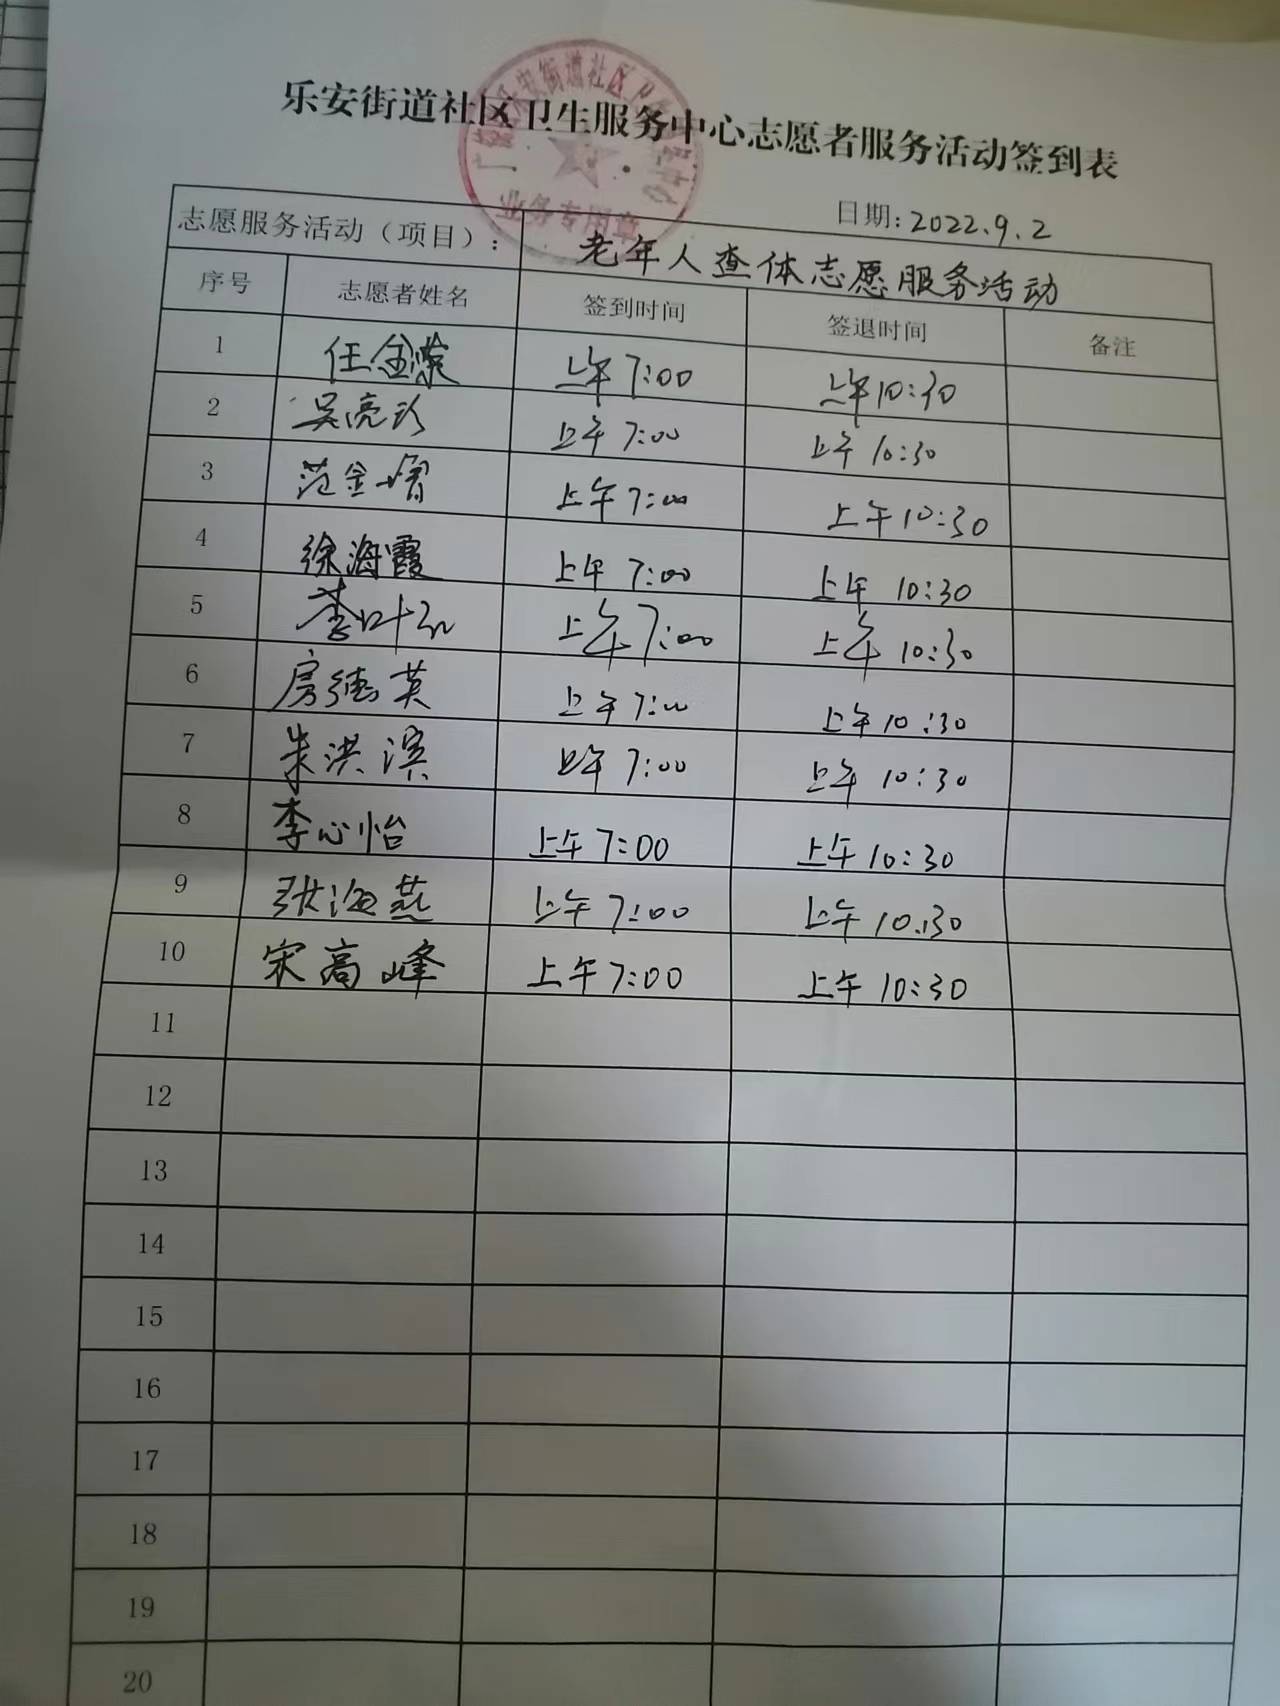 乐安街道社区卫生服务中心志愿者服务活动签到表
业务专用章
日期: 2022.9.2
志愿服务活动（项目）： 老年人查体志愿服务活动
序号 志愿者姓名 签到时间 签退时间 备注
1 任金 上午7:00 上午10:30
2 吴亮 上午7:00 上午10:30
3 范金 上午7:00 上午10:30
4 徐海霞 上午7:00 上午10:30
5 李叶 上午7:00 上午10:30
6 房德英 上午7:00 上午10:30
7 朱洪滨 上午7:00 上午10:30
8 李心怡 上午7:00 上午10:30
9 张海燕 上午7:00 上午10:30
10 宋高峰 上午7:00 上午10:30
11
12
13
14
15
16
17
18
19
20